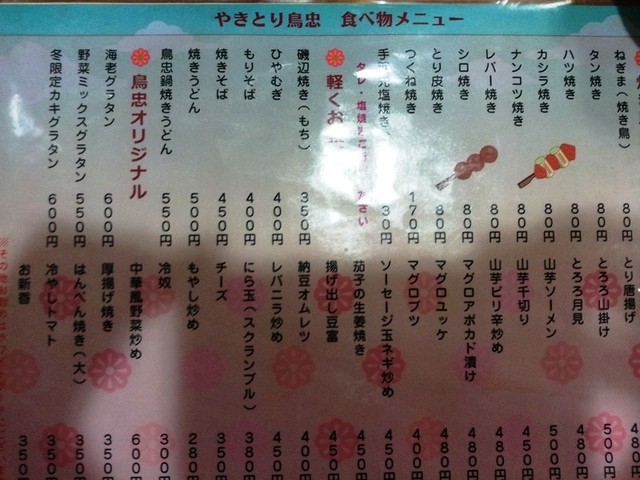 やきとり鳥忠 食べ物メニュー
ねぎま(焼き鳥) 80円
タン焼き 80円
ハツ焼き 80円
カシラ焼き 80円
ナンコツ焼き 80円
レバー焼き 80円
シロ焼き 80円
とり皮焼き 80円
つくね焼き 170円
塩焼き 30円
タレ・塩焼
さい
軽くお
磯辺焼き(もち) 350円
ひやむぎ 400円
もりそば 400円
焼きそば 450円
焼きうどん 500円
鳥忠鍋焼きうどん 550円
鳥忠オリジナル
海老グラタン 600円
野菜ミックスグラタン 550円
冬限定カキグラタン 600円
とり唐揚げ 48
とろろ山掛け 500円
とろろ月見 480円
山芋ソーメン 500円
山芋千切り 450円
山芋ピリ辛炒め 480円
マグロアボカド漬け 480円
マグロユッケ 480円
マグロブツ 400円
ソーセージ玉ネギ炒め 450円
茄子の生姜焼き 450円
揚げ出し豆富 450円
納豆オムレツ 400円
レバニラ炒め 450円
にら玉(スクランブル) 380円
チーズ 350円
もやし炒め 280円
冷奴 300円
中華風野菜炒め 600円
厚揚げ焼き 350円
はんぺん焼き(大) 350円
冷やしトマト 350円
お新香 350
※その